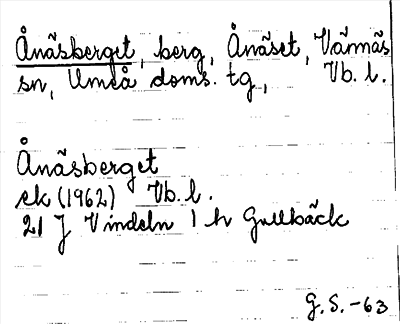 Ånäsberget, berg, Ånäset, Vännäs
sn, Umeå doms. tg, Vb. l.
Ånäsberget
ek (1962) Vb. l.
21 J Vindeln 1 h Gullbäck
G. S. -63